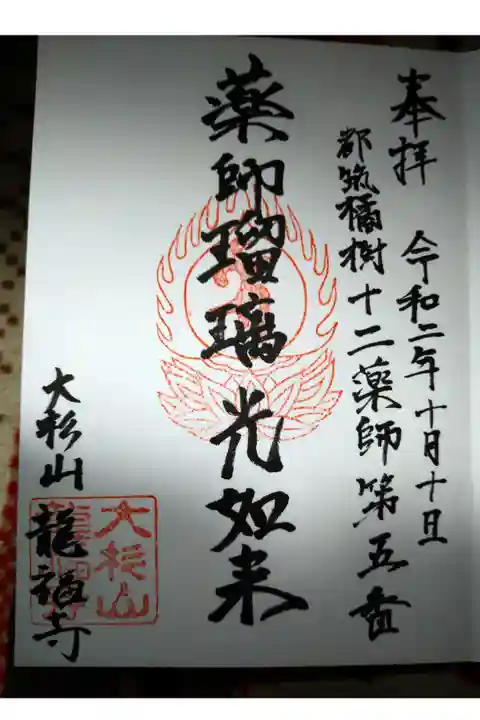 奉拝 令和二年十月十日
都筑橘樹十二薬師第五番
薬師瑠璃光如来
大杉山
龍福寺
大杉山